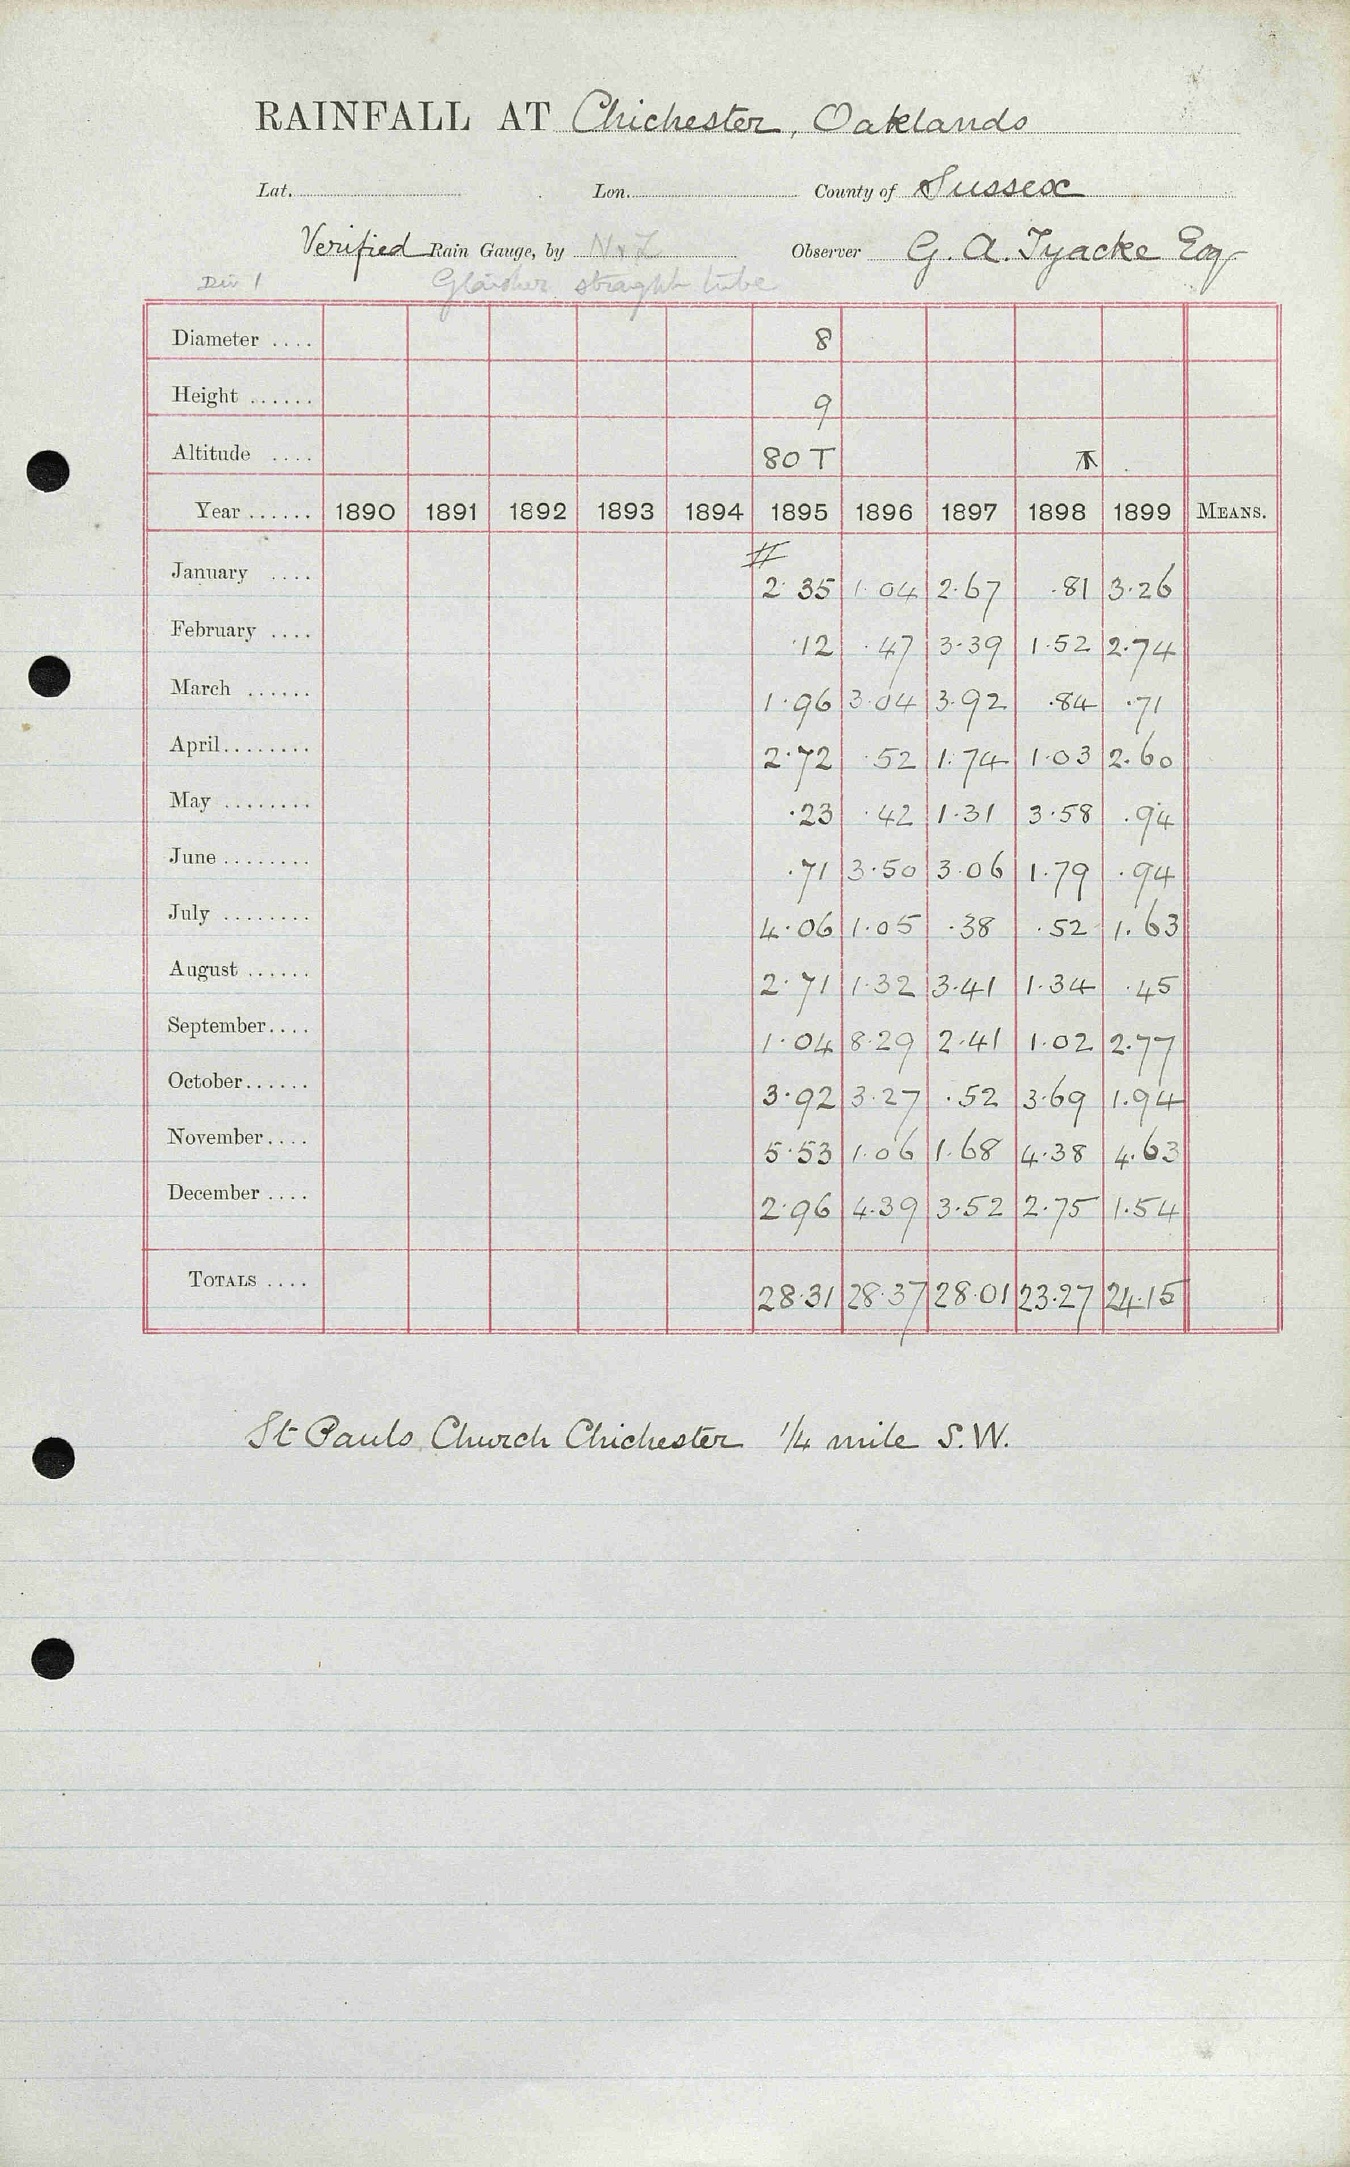 RAINFALL AT Chichester, Oaklands
Lat. Lon. County of Sussex
Verified Rain Gauge, by N & Z Observer G. A. Tyacke Esq
Div 1 Glaisher straight tube
Diameter .... 8
Height ...... 9
Altitude .... 80 T
Year ...... 1890 1891 1892 1893 1894 1895 1896 1897 1898 1899 MEANS.
January .... 2.35 1.04 2.67 .81 3.26
February .... .12 .47 3.39 1.52 2.74
March ...... 1.96 3.04 3.92 .84 .71
April........ 2.72 .52 1.74 1.03 2.60
May ........ .23 .42 1.31 3.58 .94
June ........ .71 3.50 3.06 1.79 .94
July ........ 4.06 1.05 .38 .52 1.63
August ...... 2.71 1.32 3.41 1.34 .45
September.... 1.04 8.29 2.41 1.02 2.77
October...... 3.92 3.27 .52 3.69 1.94
November.... 5.53 1.06 1.68 4.38 4.63
December .... 2.96 4.39 3.52 2.75 1.54
TOTALS .... 28.31 28.37 28.01 23.27 24.15
St Pauls Church Chichester 1/4 mile S.W.